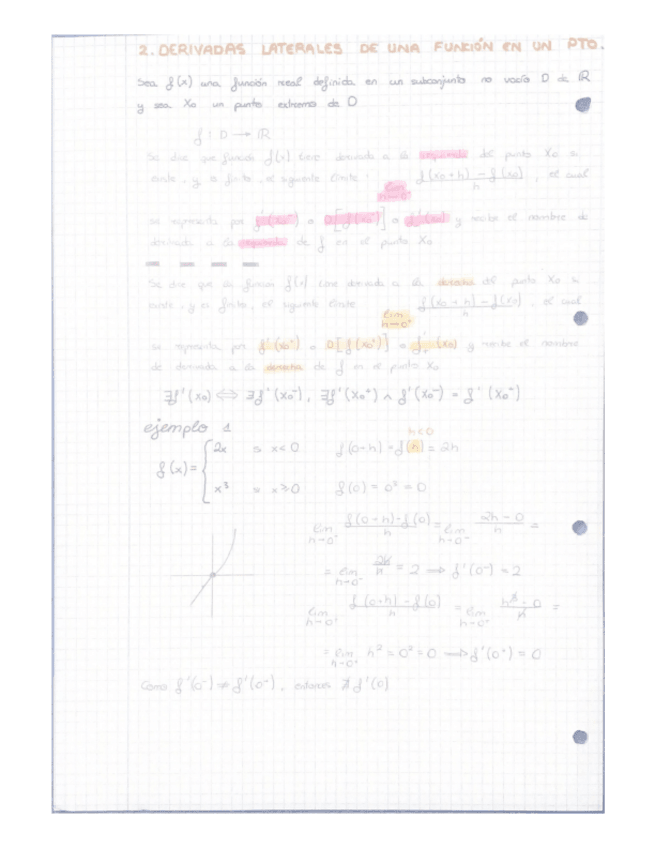 2. DERIVADAS LATERALES DE UNA FUNCIÓN EN UN PTO.
Sea f(x) una función real definida en un subconjunto no vacío D de ℝ
y sea x₀ un punto extremo de D
f : D → ℝ
Se dice que función f(x) tiene derivada a la izquierda del punto x₀ si
existe, y es finito, el siguiente límite : lim h→0⁻ f(x₀+h) - f(x₀) / h , el cual
se representa por f'(x₀⁻) o D[f(x₀⁻)] o f'₋(x₀) y recibe el nombre de
derivada a la izquierda de f en el punto x₀
Se dice que la función f(x) tiene derivada a la derecha del punto x₀ si
existe, y es finito, el siguiente límite lim h→0⁺ f(x₀+h) - f(x₀) / h , el cual
se representa por f'(x₀⁺) o D[f(x₀⁺)] o f'₊(x₀) y recibe el nombre
de derivada a la derecha de f en el punto x₀
∃f'(x₀) ⇔ ∃f'(x₀⁻), ∃f'(x₀⁺) ∧ f'(x₀⁻) = f'(x₀⁺)
ejemplo 1
h<0
f(x) = { 2x si x<0 f(0+h) = f(h) = 2h
x³ si x≥0 f(0) = 0³ = 0
lim h→0⁻ f(0+h)-f(0) / h = lim h→0⁻ 2h-0 / h =
= lim h→0⁻ 2h / h = 2 ⟹ f'(0⁻) = 2
lim h→0⁺ f(0+h) - f(0) / h = lim h→0⁺ h³-0 / h =
= lim h→0⁺ h² = 0² = 0 ⟹ f'(0⁺) = 0
Como f'(0⁻) ≠ f'(0⁺), entonces ∄ f'(0)